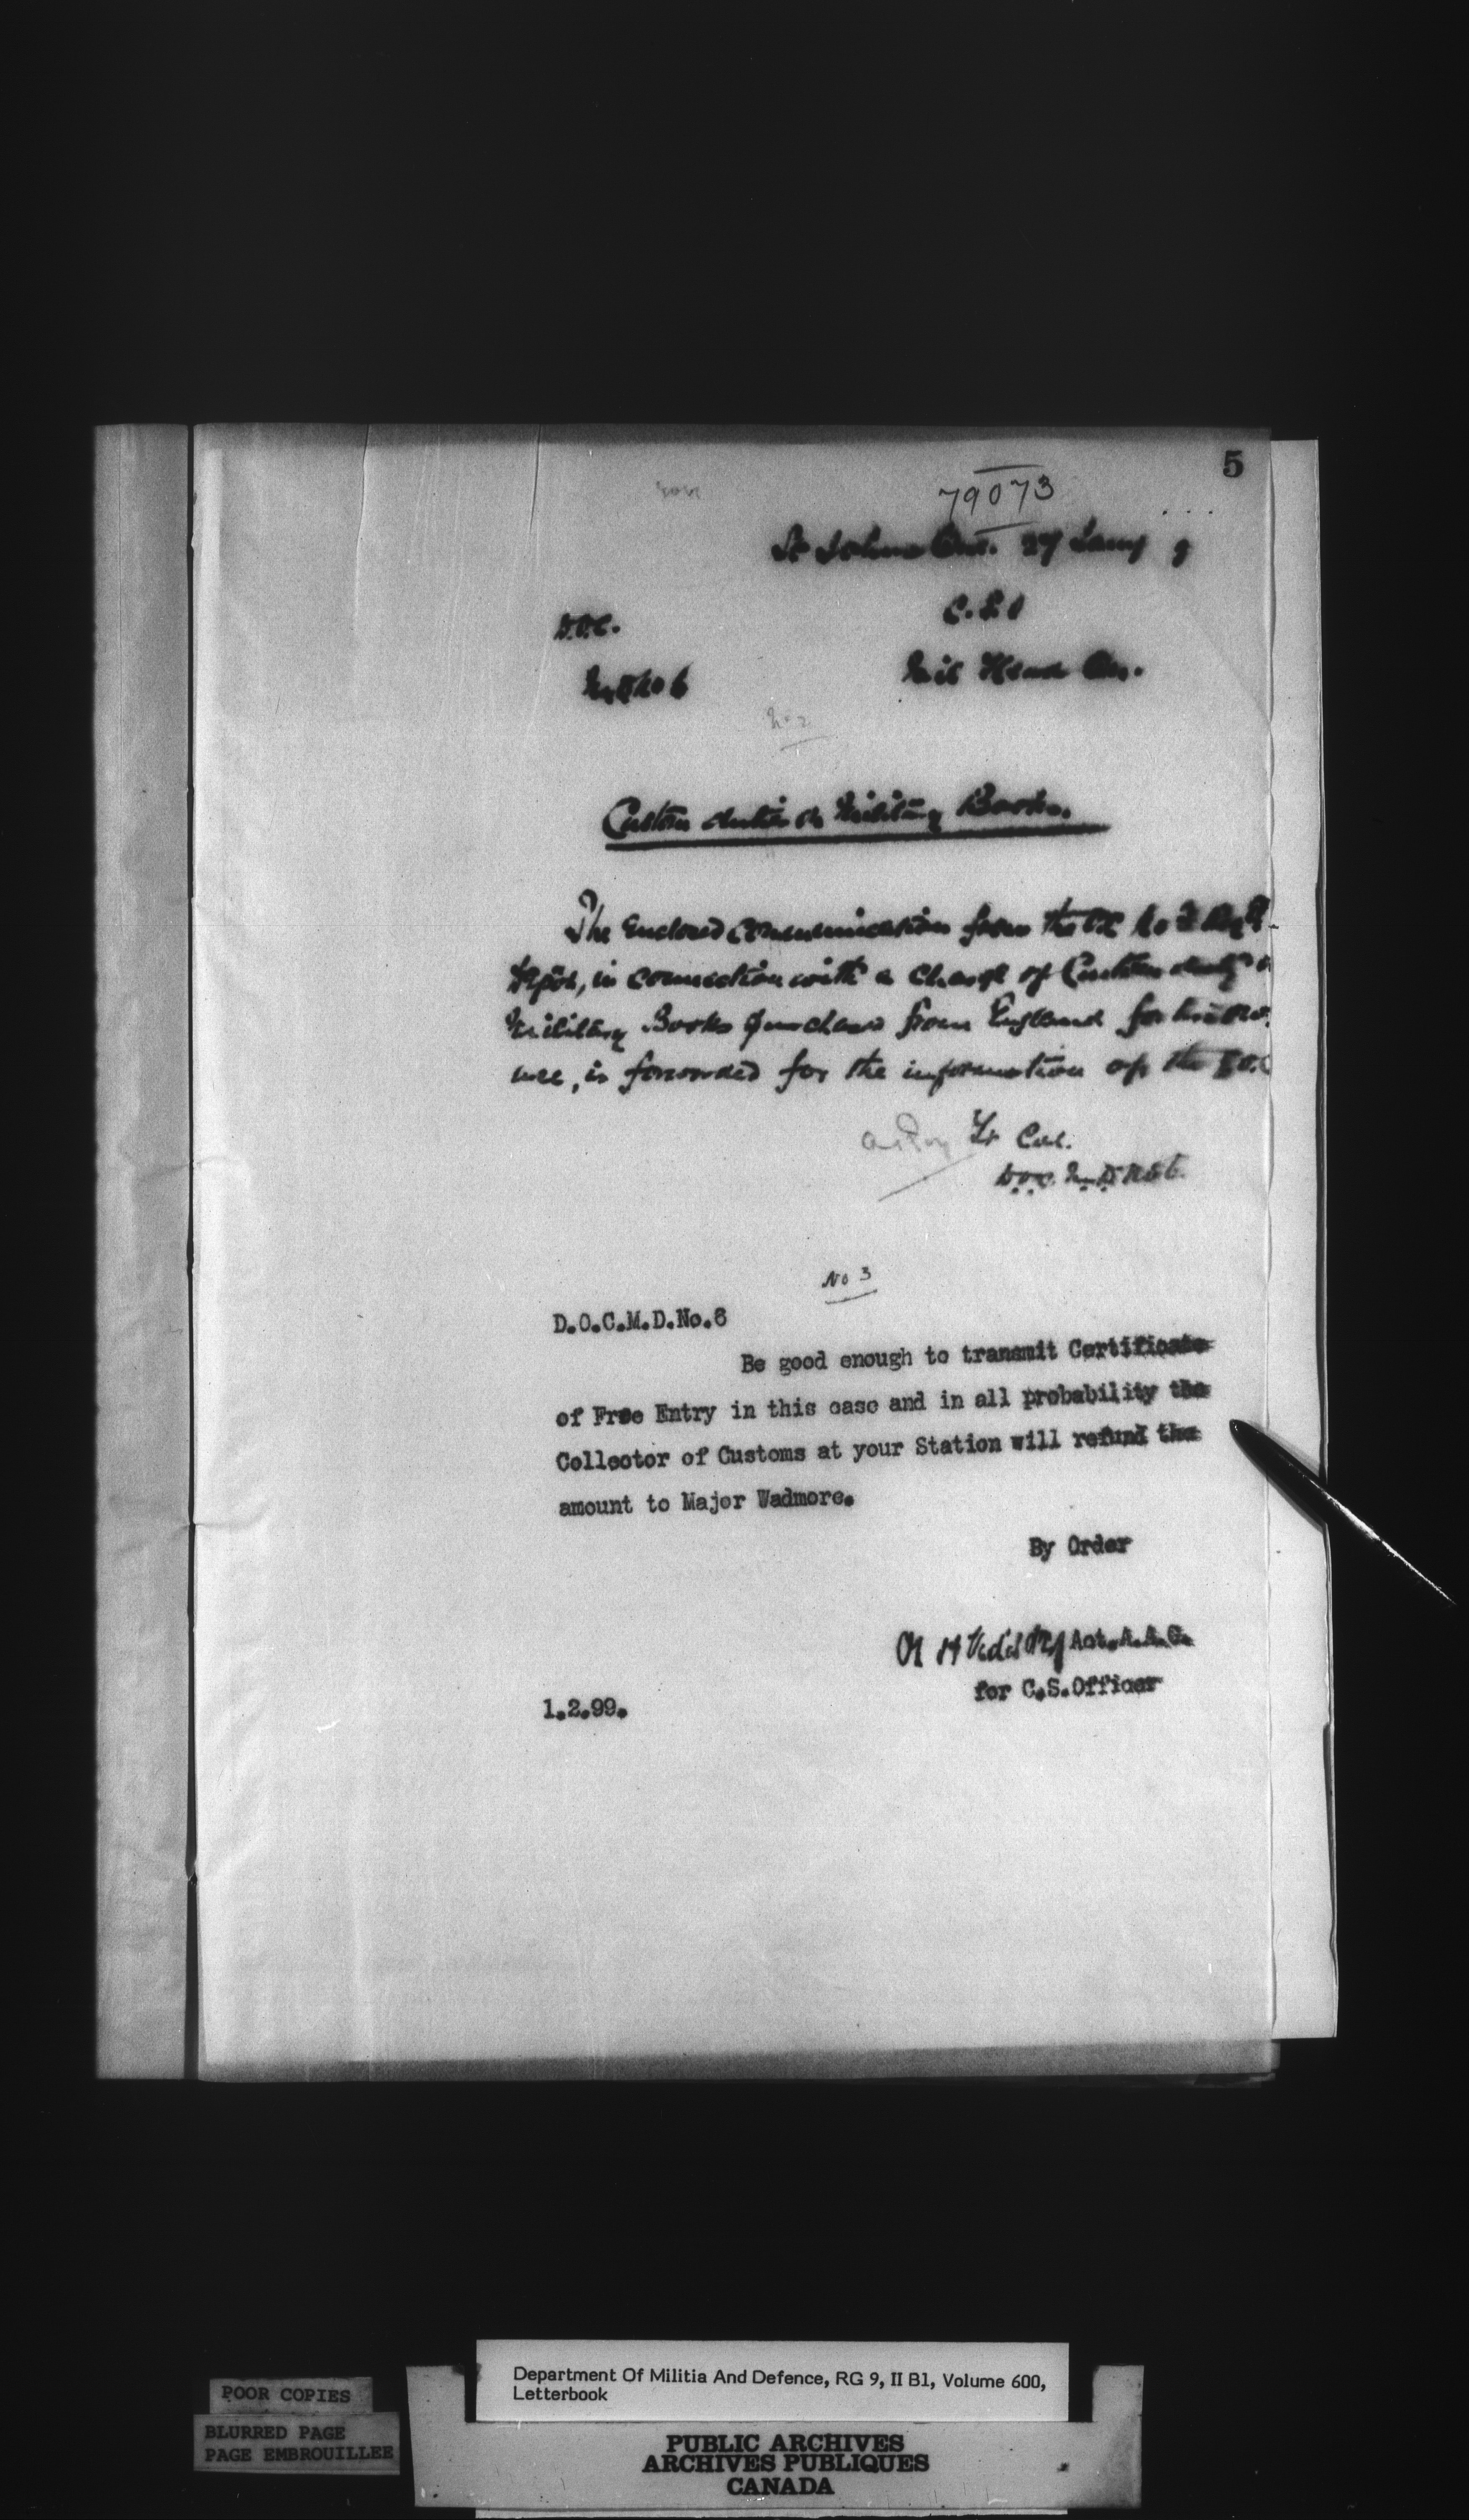 5
79073
St Johns Que. 27 Jany 9
D.O.C. C.S.O
M.D No 6 Mil Head Qrs.
No 2
Custom duties on Military Books.
The enclosed communication from the OC No 3 Regtl
Depôt, in connection with a charge of Custom duty
Military Books purchased from England for
use, is forwarded for the information of the
Lt Col.
D.O.C. M.D No 6.
No 3
D.O.C.M.D.No.6
Be good enough to transmit Certificate
of Free Entry in this case and in all probability the
Collector of Customs at your Station will refund the
amount to Major Wadmore.
By Order
Act.A.A.G.
for C.S.Officer
1.2.99.
POOR COPIES
BLURRED PAGE
PAGE EMBROUILLEE
Department Of Militia And Defence, RG 9, II B1, Volume 600,
Letterbook
PUBLIC ARCHIVES
ARCHIVES PUBLIQUES
CANADA